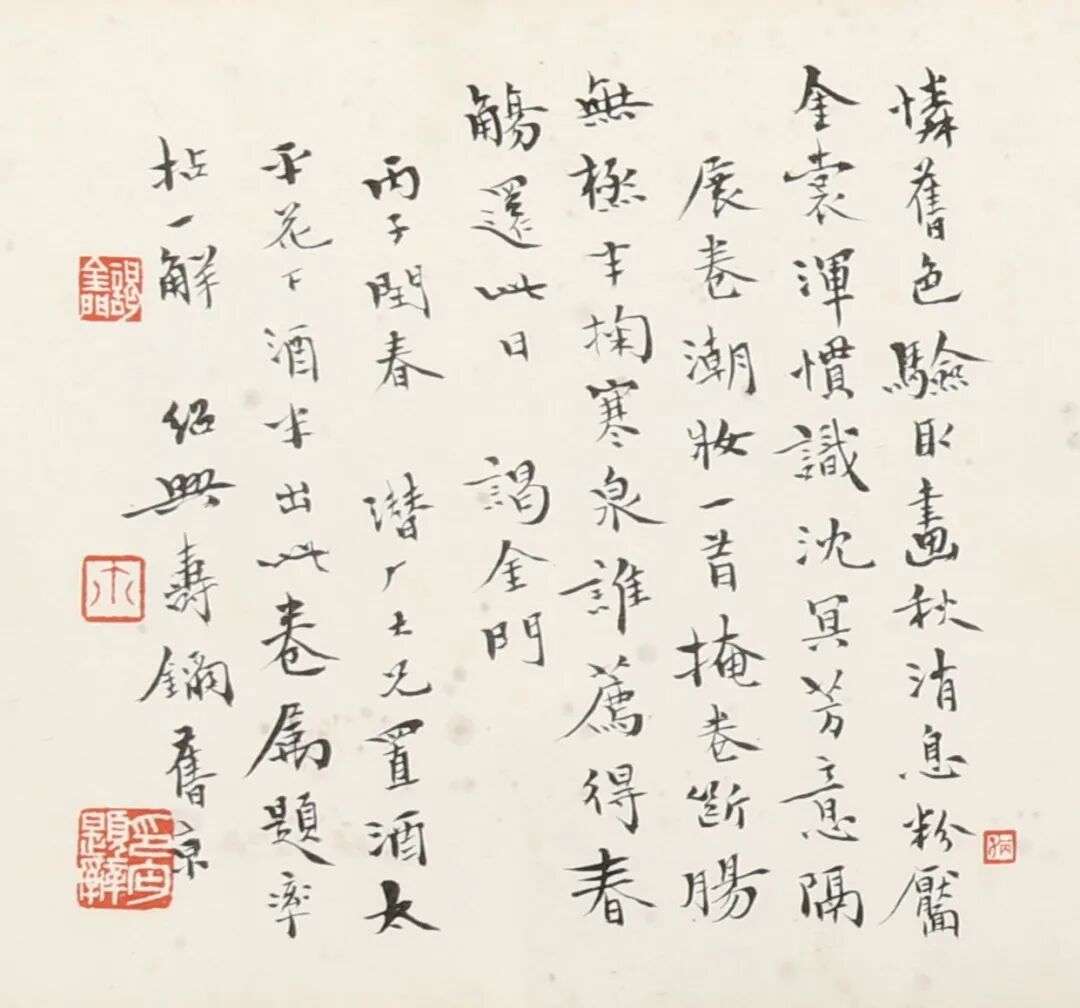 憐舊色驗取畫秋消息粉靨
金裳渾慣識沈冥芳意隔
展卷潮妝一昔掩卷斷腸
無極手掬寒泉誰薦得春
觴還此日　謁金門
丙子閏春　潛厂大兄置酒太
平花下酒半出此卷屬題率
拈一解　紹興壽鏞舊京